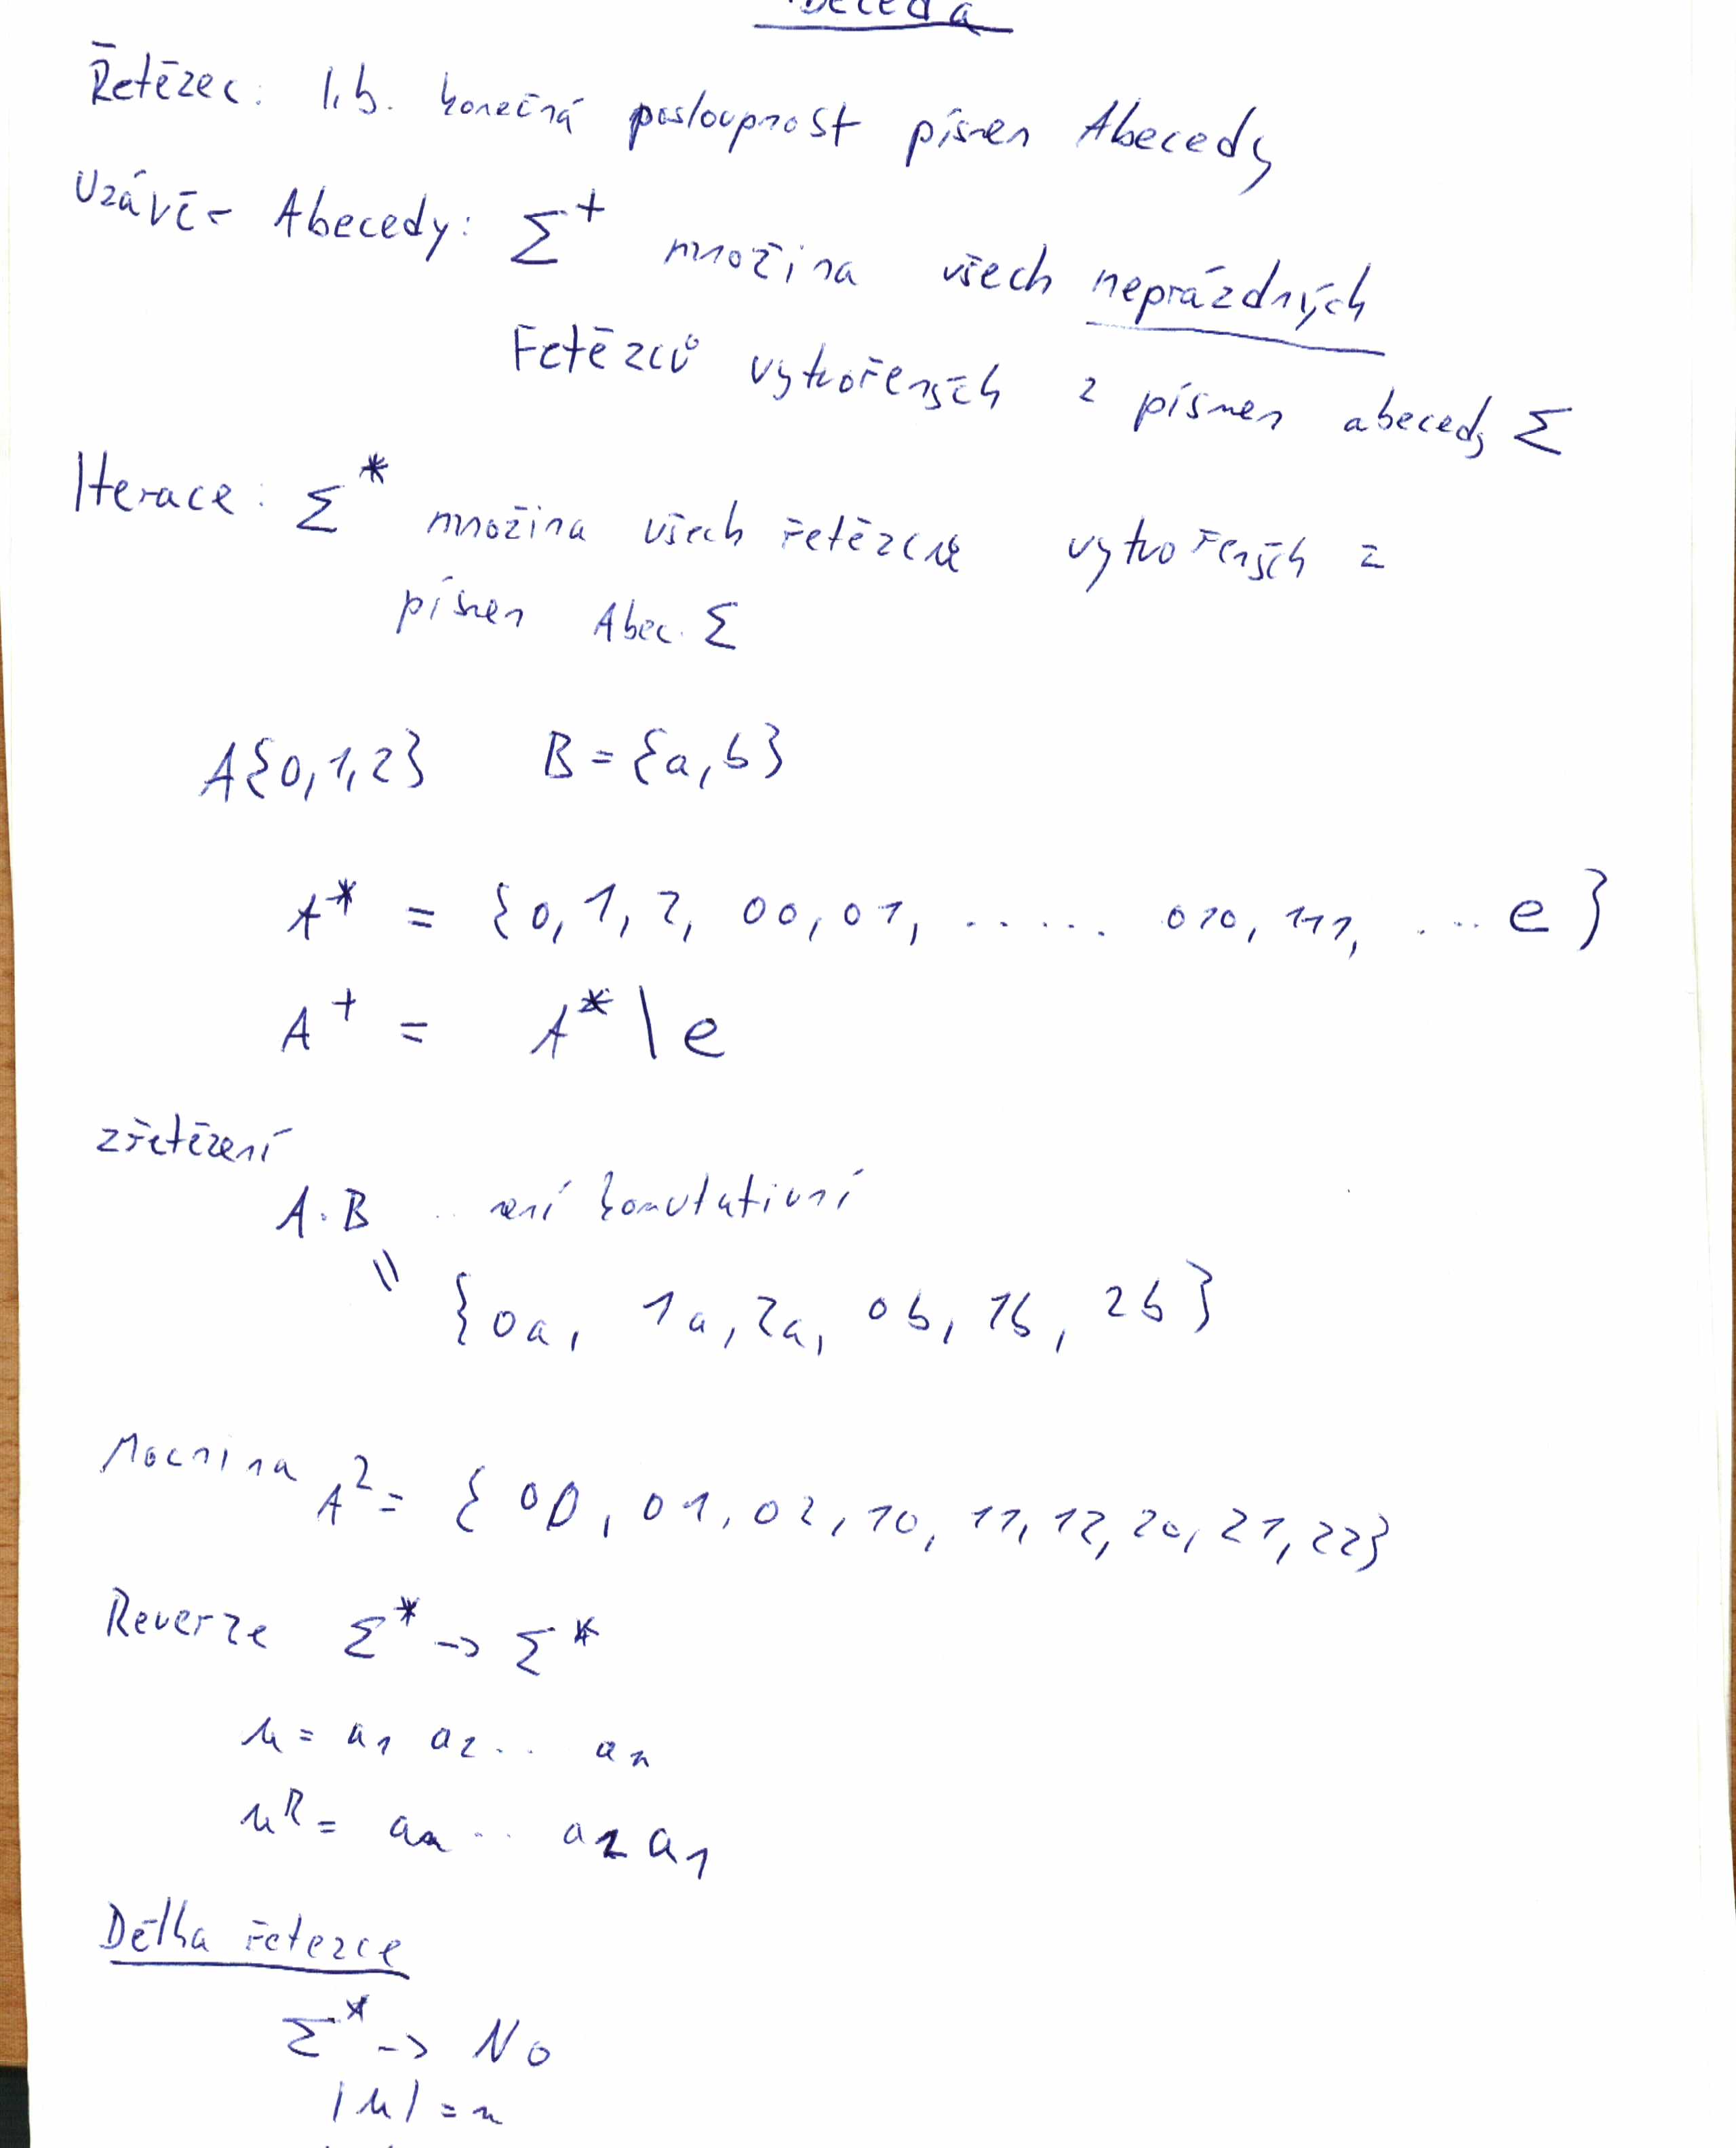 Abeceda
Řetězec: lib. konečná posloupnost písmen Abecedy
Uzávěr Abecedy: Σ⁺ množina všech neprázdných
řetězců vytvořených z písmen abecedy Σ
Iterace: Σ* množina všech řetězců vytvořených z
písmen Abec. Σ
A{0,1,2} B = {a,b}
A* = {0, 1, 2, 00, 01, ..... 010, 111, ... e}
A⁺ = A* \ e
zřetězení
A.B .. není komutativní
= {0a, 1a, 2a, 0b, 1b, 2b}
Mocnina A² = {00, 01, 02, 10, 11, 12, 20, 21, 22}
Reverze Σ* -> Σ*
u = a₁ a₂ .. aₙ
uᴿ = aₙ .. a₂ a₁
Délka řetezce
Σ* -> N₀
|u| = n